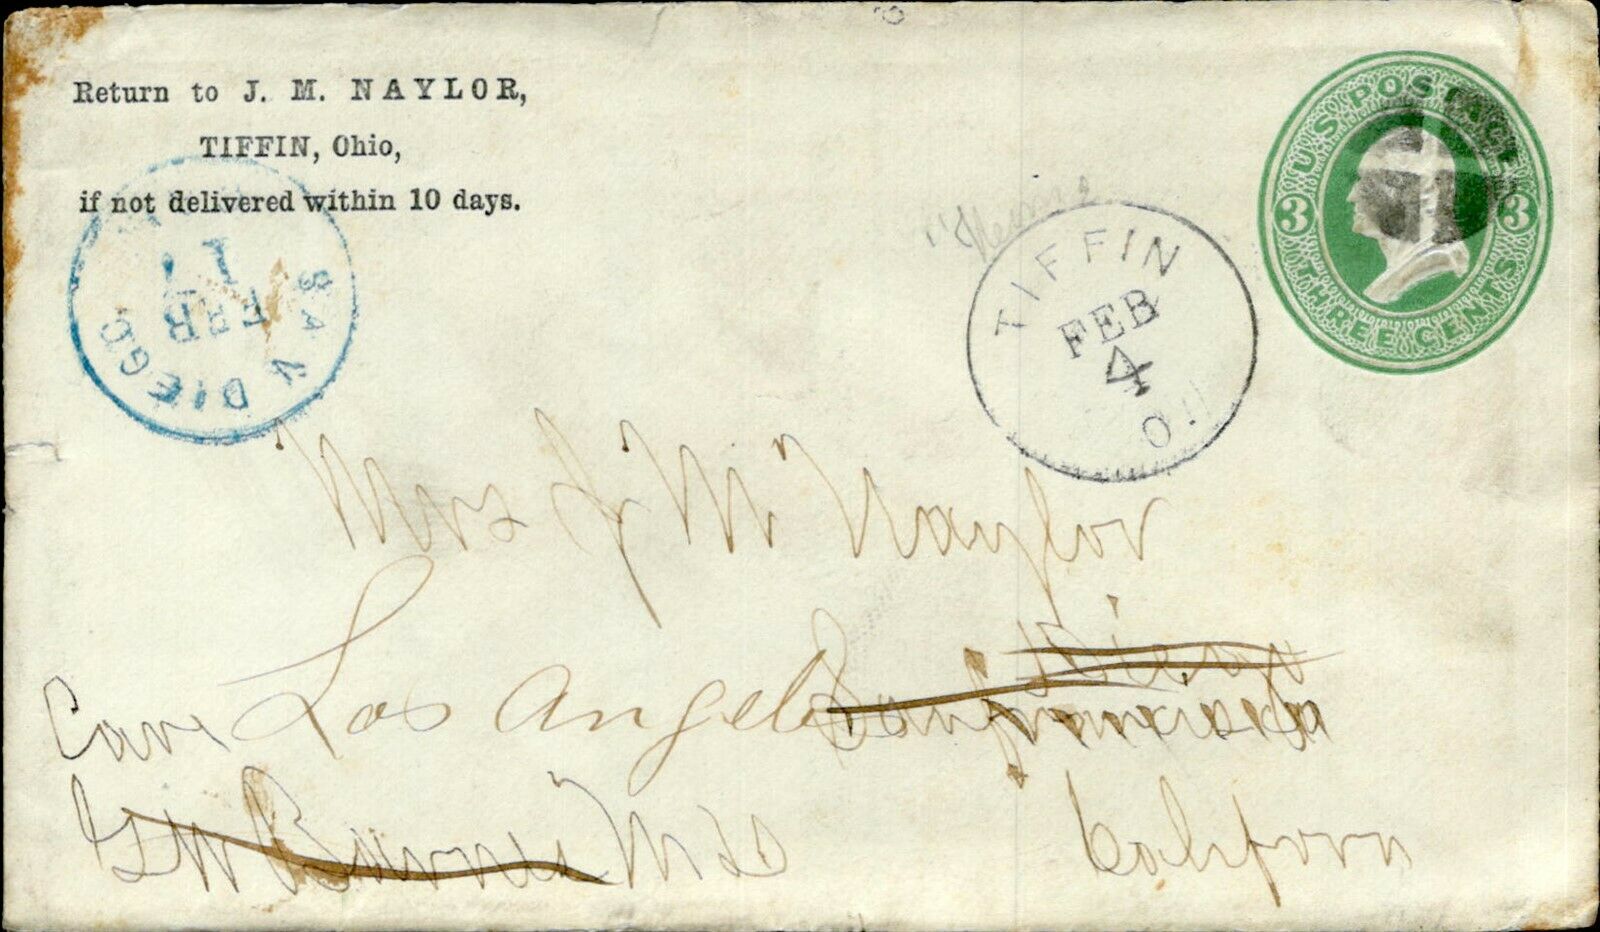 Return to J. M. NAYLOR,
TIFFIN, Ohio,
if not delivered within 10 days.
U.S. POSTAGE
3 3
THREE CENTS
TIFFIN
FEB
4
O.
SAN DIEGO
FEB
11
Mrs J M Naylor
Diego
Los Angeles San francisco
Care
G W Barnes M D
Californ